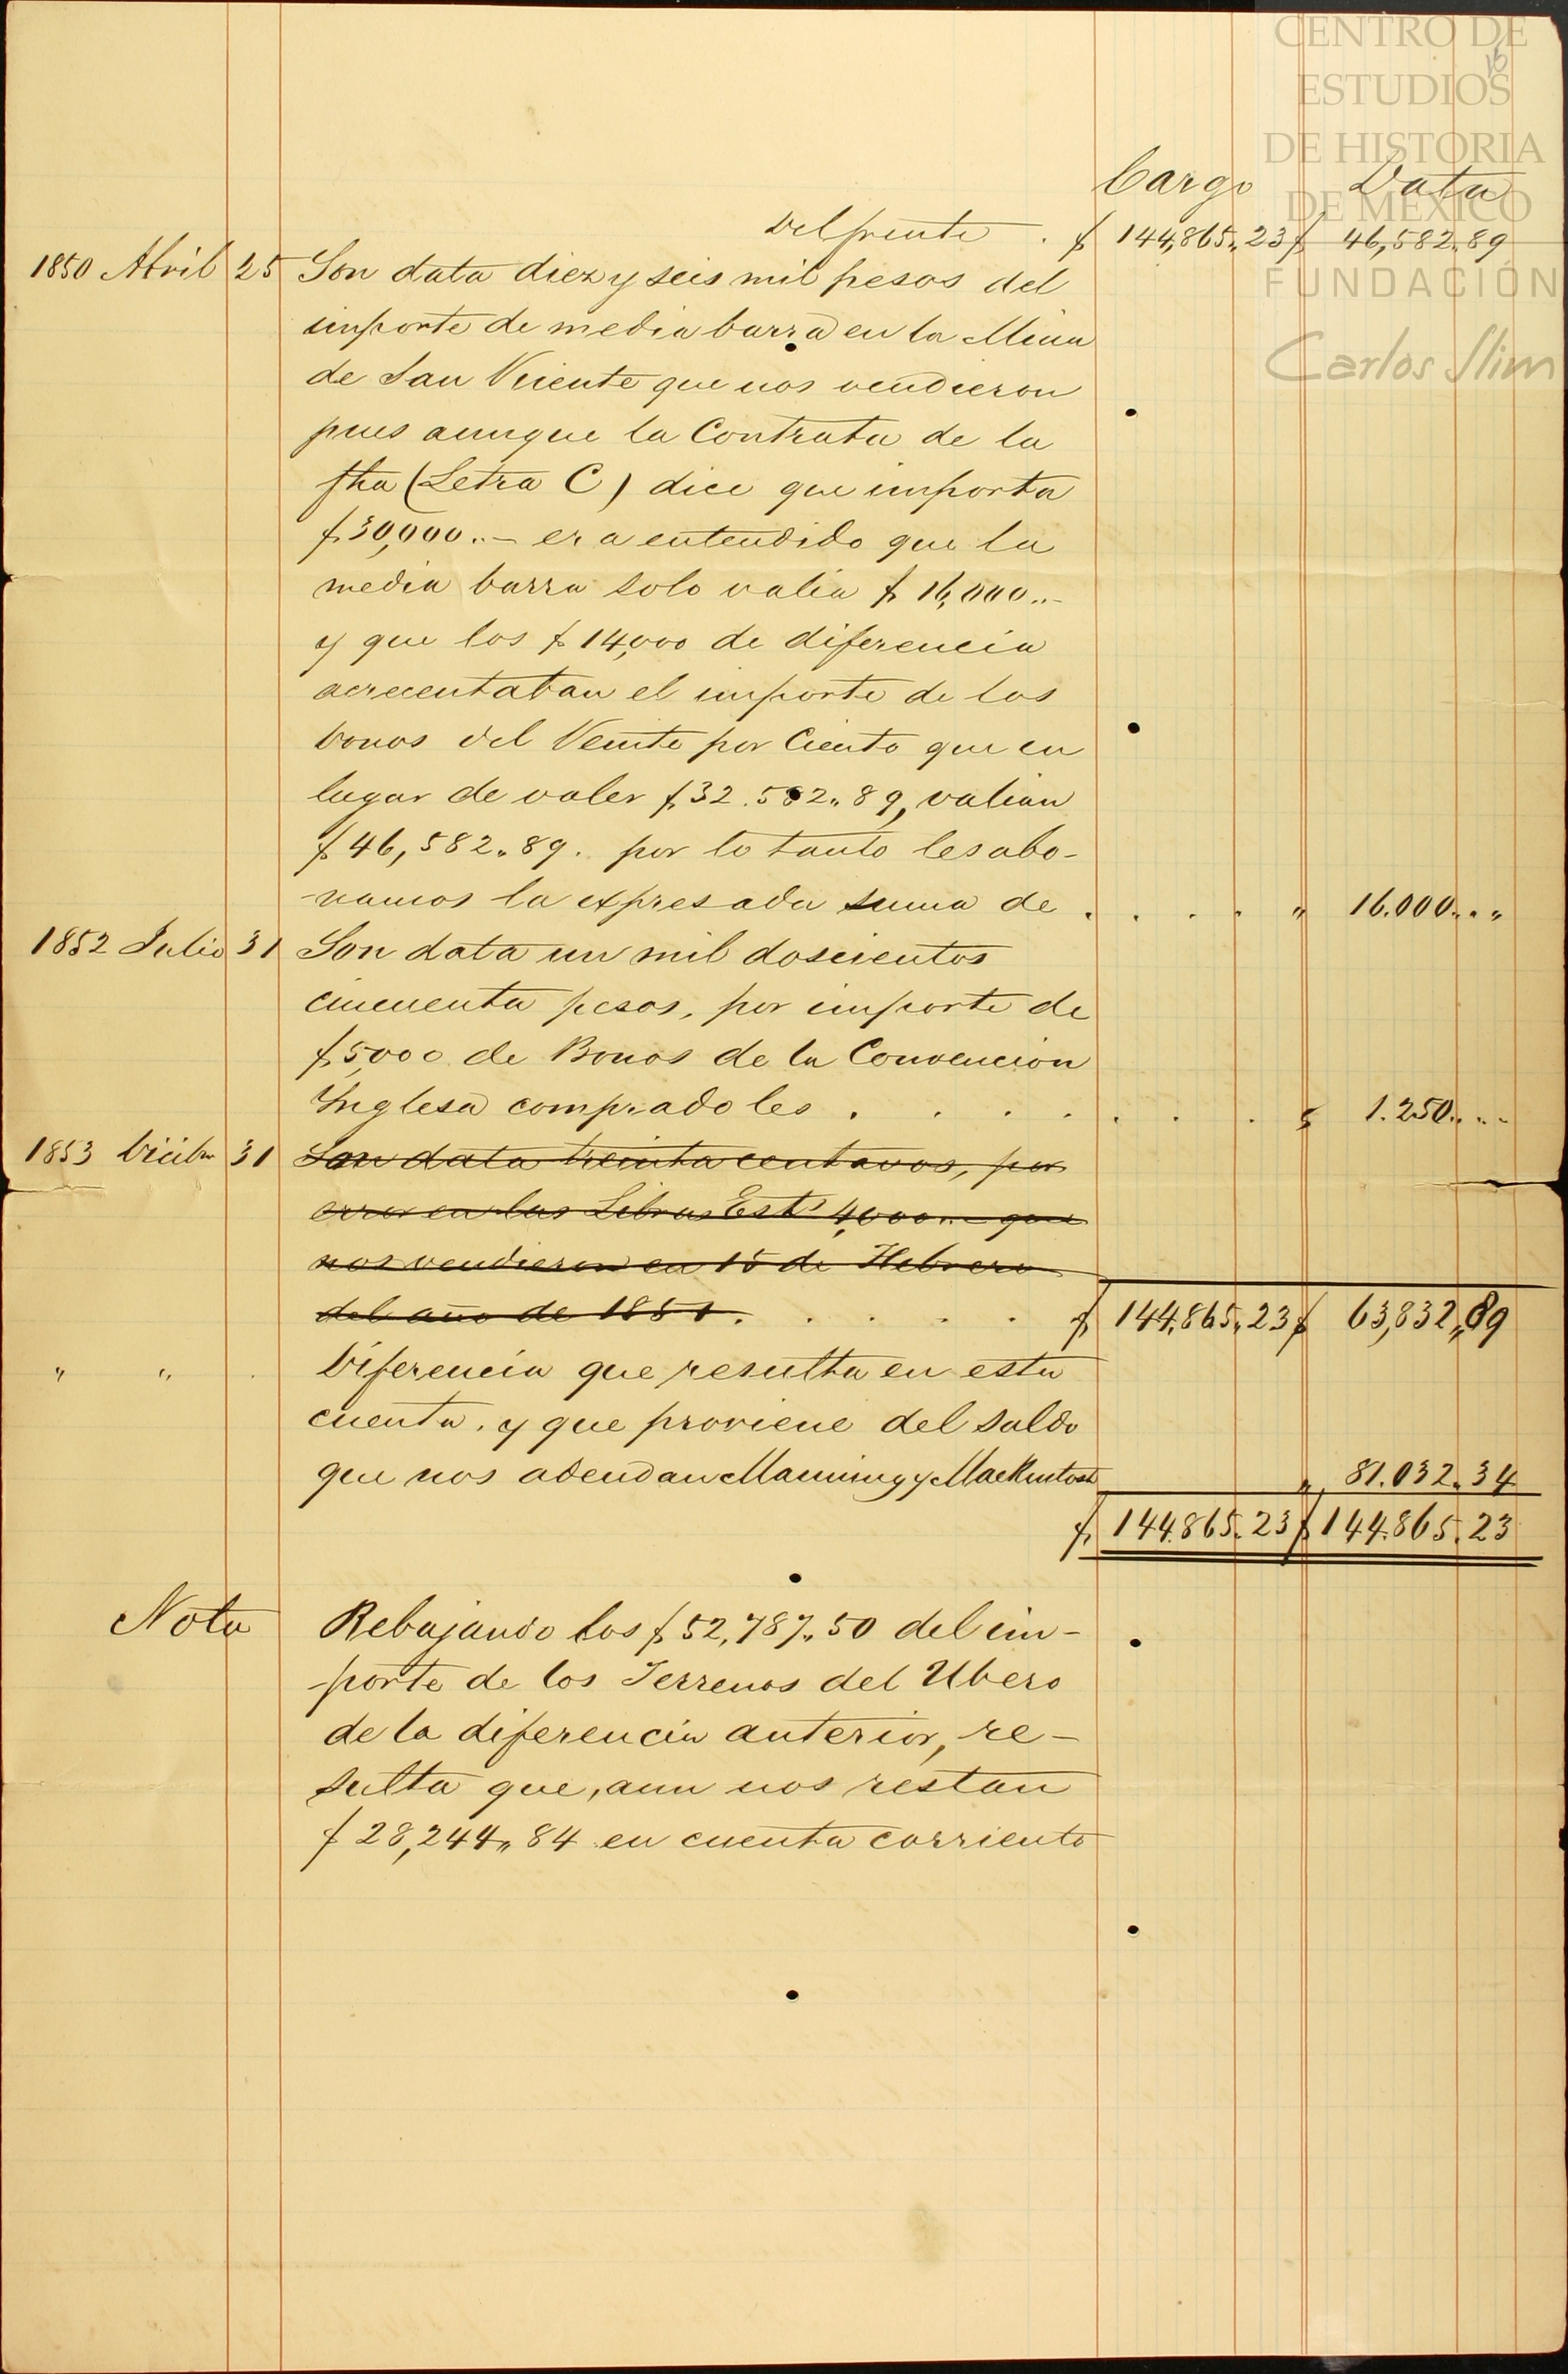 CENTRO DE
ESTUDIOS
DE HISTORIA
DE MÉXICO
FUNDACIÓN
Carlos Slim
16
Cargo Data
Del frente . $ 144,865,,23 $ 46,582,,89
1850 Abril 25 Son data diez y seis mil pesos del
importe de media barra en la Mina
de San Vicente que nos vendieron
pues aunque la Contrata de la
fha (Letra C) dice que importa
$ 30,000..— era entendido que la
media barra solo valia $ 16,000..—
y que los $ 14,000 de diferencia
acrecentaban el importe de los
bonos del Veinte por Ciento que en
lugar de valer $ 32.582,,89, valian
$ 46,582,,89. por lo tanto les abo-
-namos la expresada suma de . . . . " 16.000.. "
1852 Julio 31 Son data un mil doscientos
cincuenta pesos, por importe de
$ 5,000 de Bonos de la Convencion
Inglesa compradoles . . . . . . . . " 1.250.. --
1853 Dicibre 31 Son data treinta centavos, por
error en las Libras Ests 4,000.. — que
nos vendieron en 15 de Hebrero
del año de 1851. . . . . $ 144,865,,23 $ 63,832,,89
" " . Diferencia que resulta en esta
cuenta, y que proviene del saldo
que nos adeudan Manning y Mackintosh " 81.032,,34
$ 144.865.23 $ 144.865.23
Nota Rebajando los $ 52,787,,50 del im-
-porte de los Terrenos del Ubero
de la diferencia anterior, re-
sulta que, aun nos restan
$ 28,244,,84 en cuenta corriente